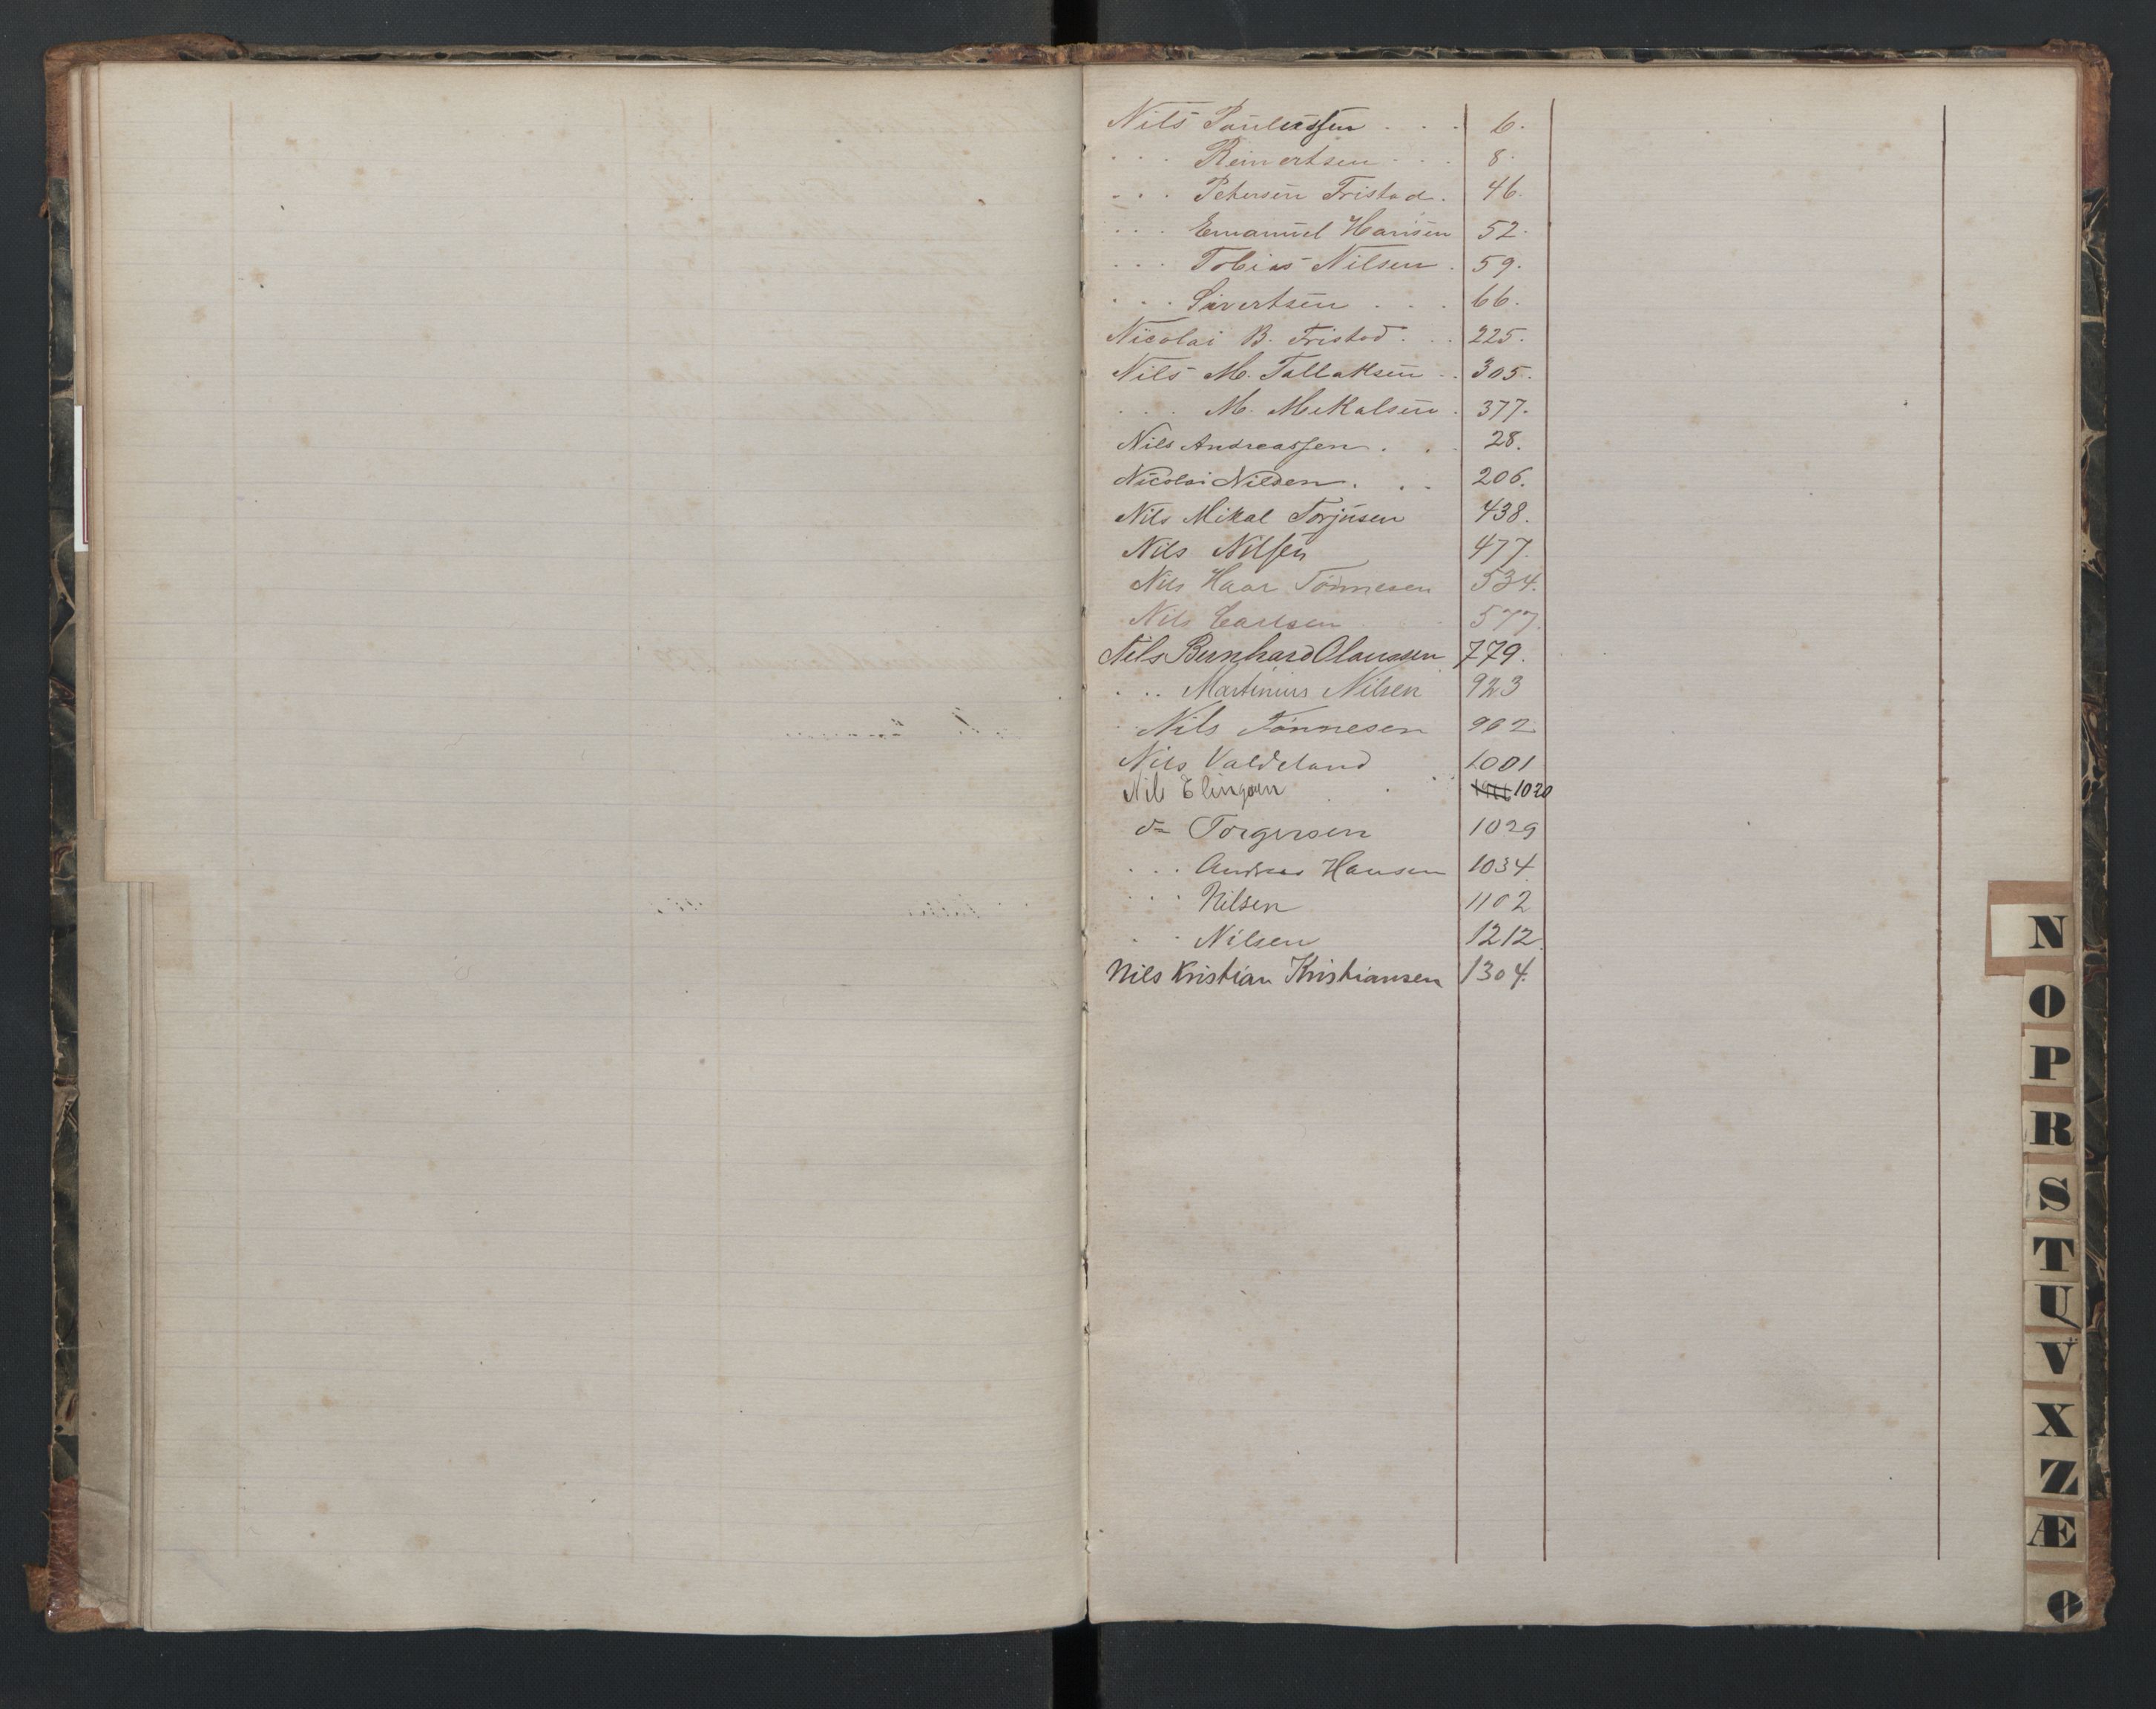 Nils Paulussen . . . 6.
. . . Reinertsen . . . 8.
. . . Petersen Tristad . 46.
. . . Emanuel Hansen 52.
. . . Tobias Nilsen . 59.
. . . Sivertsen . . . 66.
Nicolai B. Tristad . . . 225.
Nils M. Tallaksen . . 305.
. . . M. Mekalsen . 377.
Nils Andreassen . . . 28.
Nicolai Nilsen . . . 206.
Nils Mikal Torjusen 438.
Nils Nilsen 477.
Nils Haar Tönnesen 534.
Nils Carlsen . . 577.
Nels Bernhard Olaussen 779.
. . . Martinius Nilsen 923
Nils Tönnesen 902
Nils Valdeland 1001
Nils Elingsen 1020
do Torgersen 1029
. . . Andreas Hansen 1034
. . . Nilsen 1102
. . Nilsen 1212.
Nils Kristian Kristiansen 1304.
N
O
P
R
S
T
U
V
X
Z
Æ
Ø